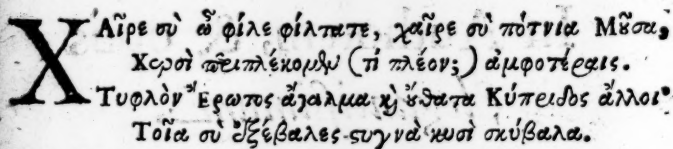 Χαῖρε σὺ ὦ φίλε φίλτατε, χαῖρε σὺ πότνια Μοῦσα,
Χερσὶ περιπλέκομεν (τί πλέον;) ἀμφοτέραις.
Τυφλὸν Ἔρωτος ἄγαλμα ϗ οὔθατα Κύπριδος ἄλλοι·
Τοῖα σὺ ἐξέβαλες στυγνὰ κυσὶ σκύβαλα.